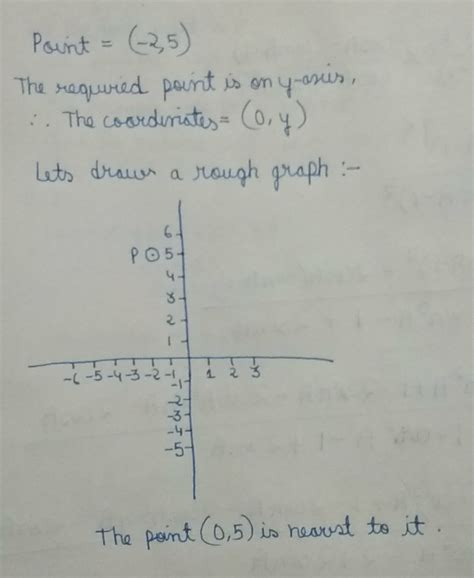 Point = (-2,5)
The required point is on y-axis,
∴ The coordinates = (0, y)
Lets draw a rough graph :-
6
P ⊙ 5
4
3
2
1
-6 -5 -4 -3 -2 -1 1 2 3
-1
-2
-3
-4
-5
The point (0,5) is nearst to it .